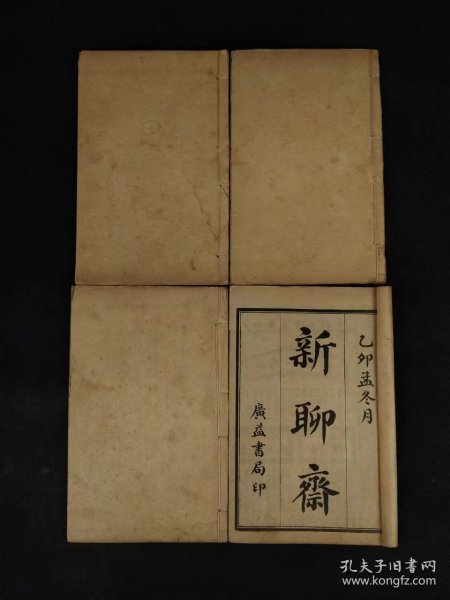 乙卯孟冬月
新聊齋
廣益書局印
孔夫子旧书网
www.kongfz.com